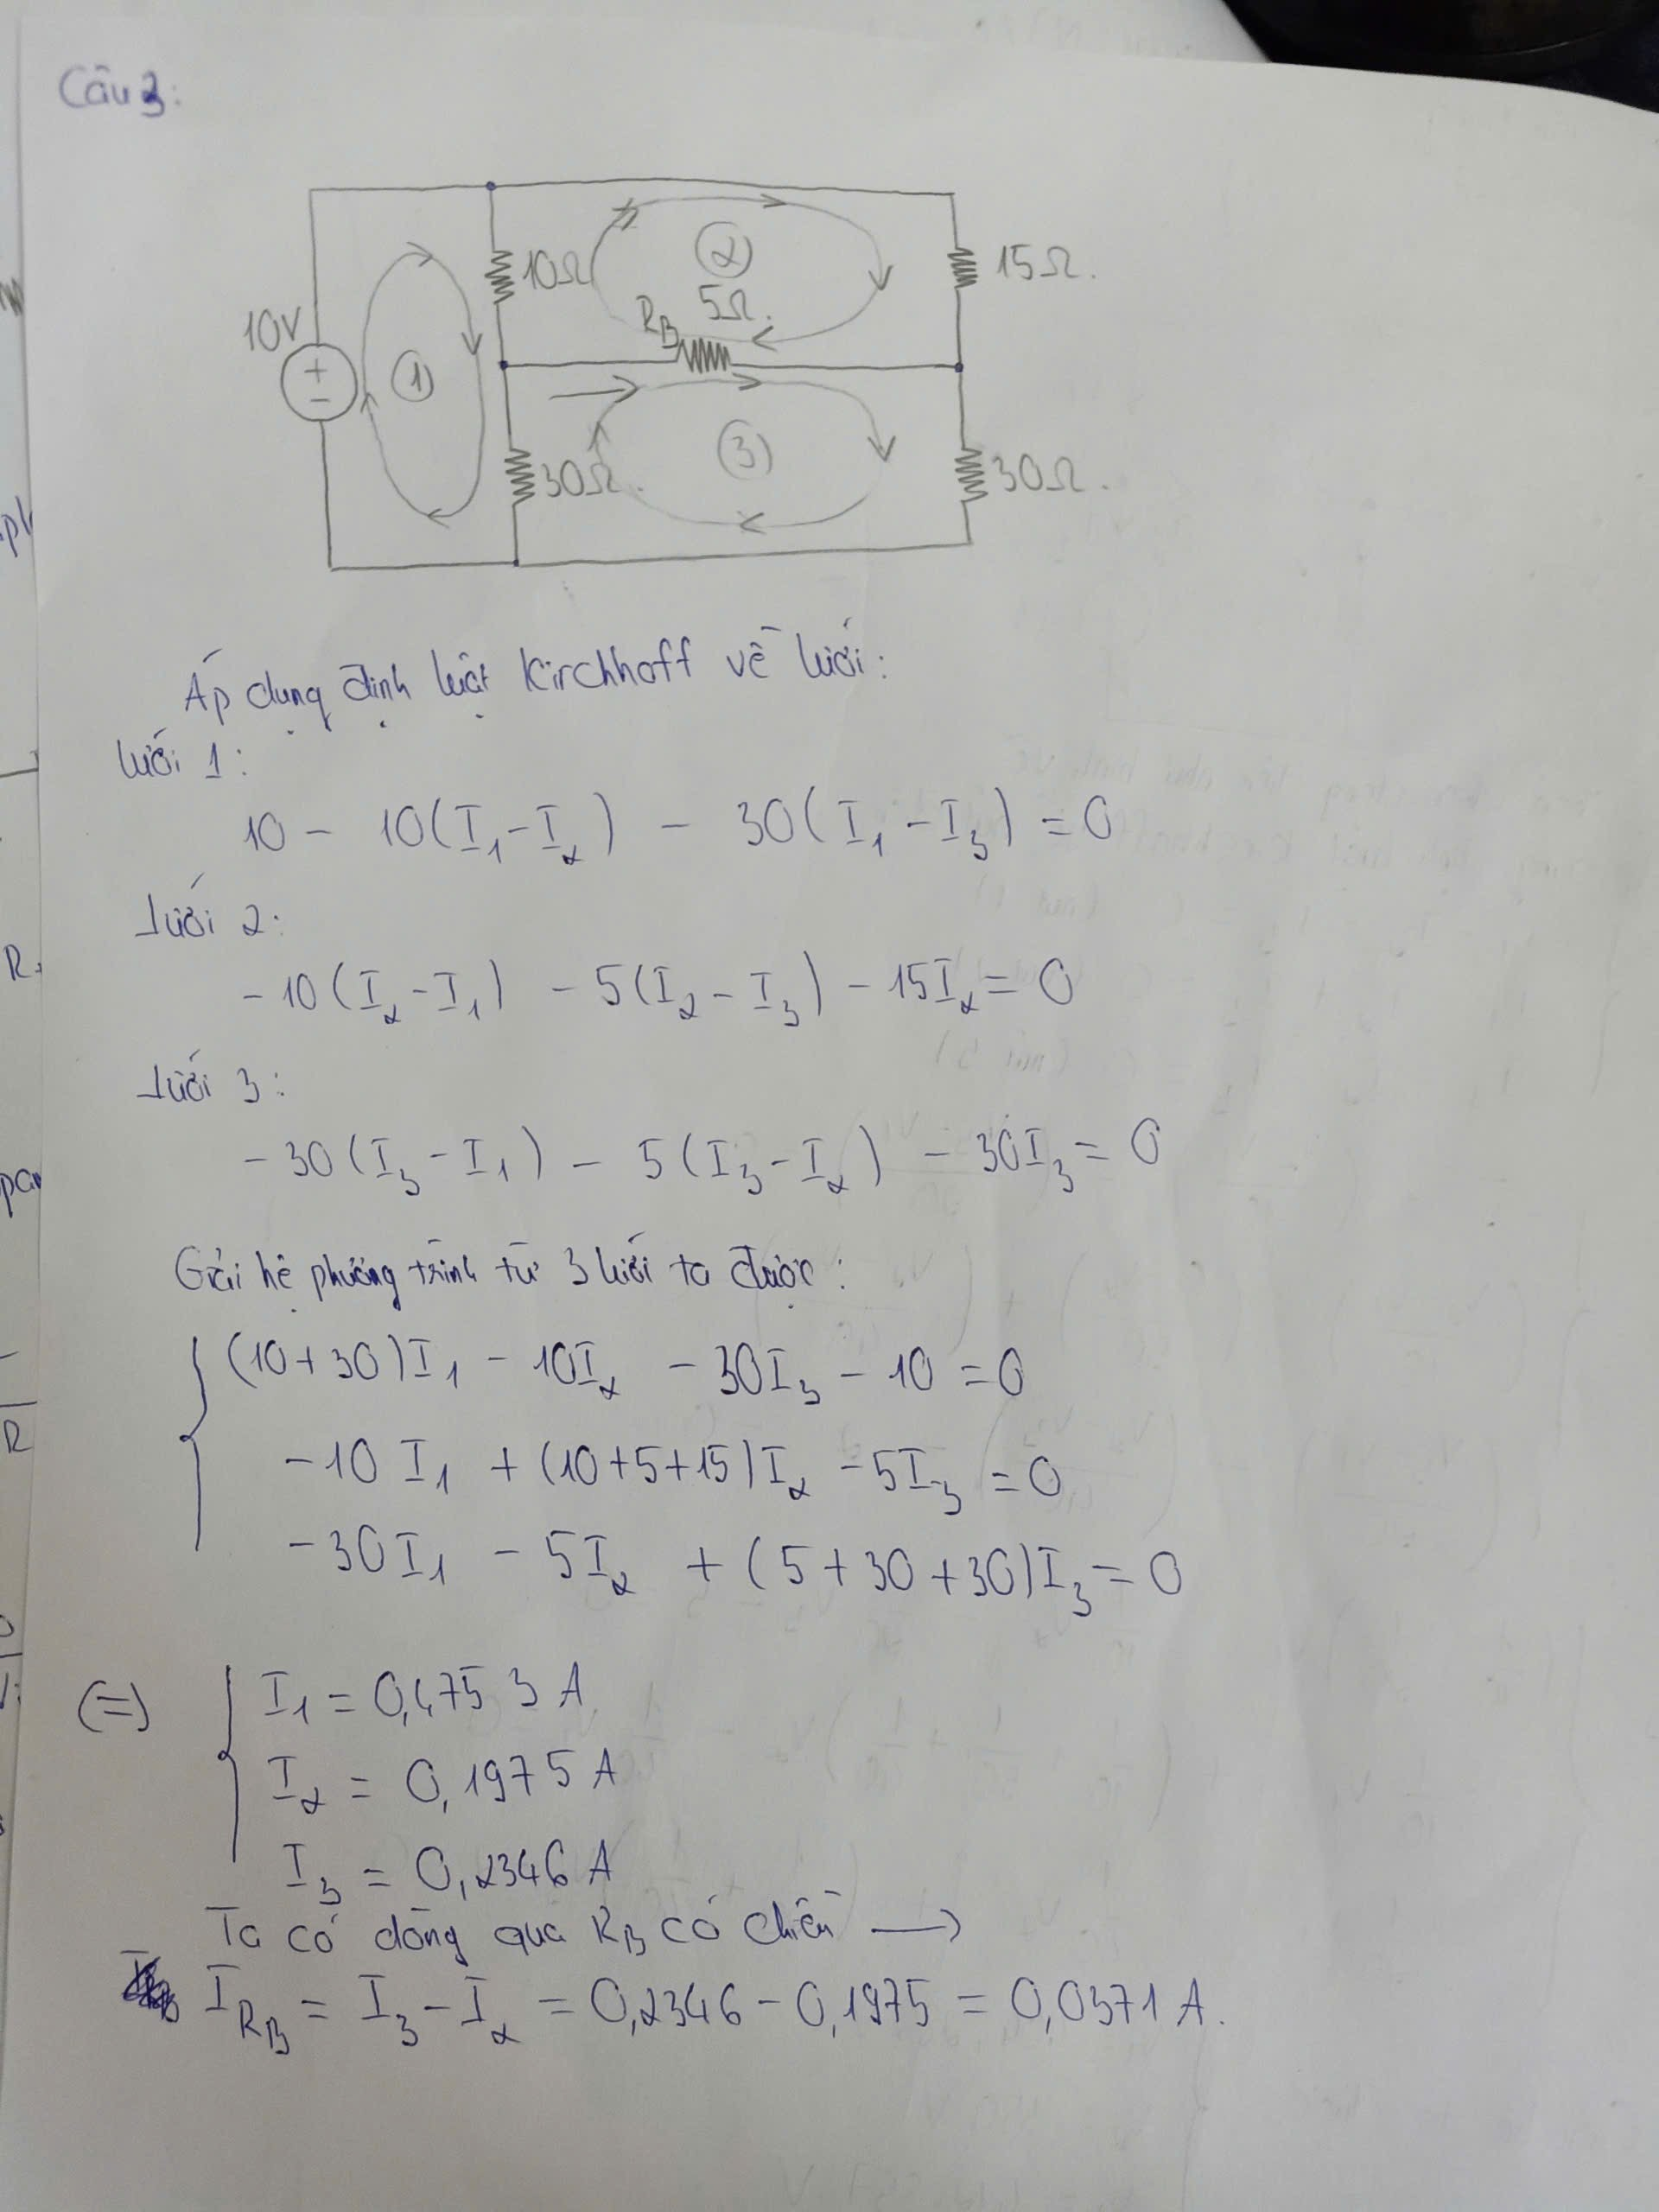 Câu 3:
10Ω
②
15Ω.
5Ω.
R_B
10V
+
−
①
③
30Ω.
30Ω.
Áp dụng định luật Kirchhoff về lưới:
lưới 1:
10 − 10(I₁−I₂) − 30(I₁−I₃) = 0
lưới 2:
−10(I₂−I₁) − 5(I₂−I₃) − 15I₂ = 0
lưới 3:
−30(I₃−I₁) − 5(I₃−I₂) − 30I₃ = 0
Giải hệ phương trình từ 3 lưới ta được:
(10+30)I₁ − 10I₂ − 30I₃ − 10 = 0
−10I₁ + (10+5+15)I₂ − 5I₃ = 0
−30I₁ − 5I₂ + (5+30+30)I₃ = 0
(=) I₁ = 0,4753 A
I₂ = 0,1975 A
I₃ = 0,2346 A
Ta có dòng qua R_B có chiều ⟶
I_RB = I₃−I₂ = 0,2346 − 0,1975 = 0,0371 A.